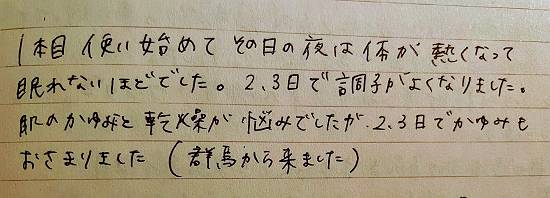 1本目 使い始めて その日の夜は体が熱くなって
眠れないほどでした。2、3日で調子がよくなりました。
肌のかゆみと乾燥が悩みでしたが、2、3日でかゆみも
おさまりました（群馬から来ました）